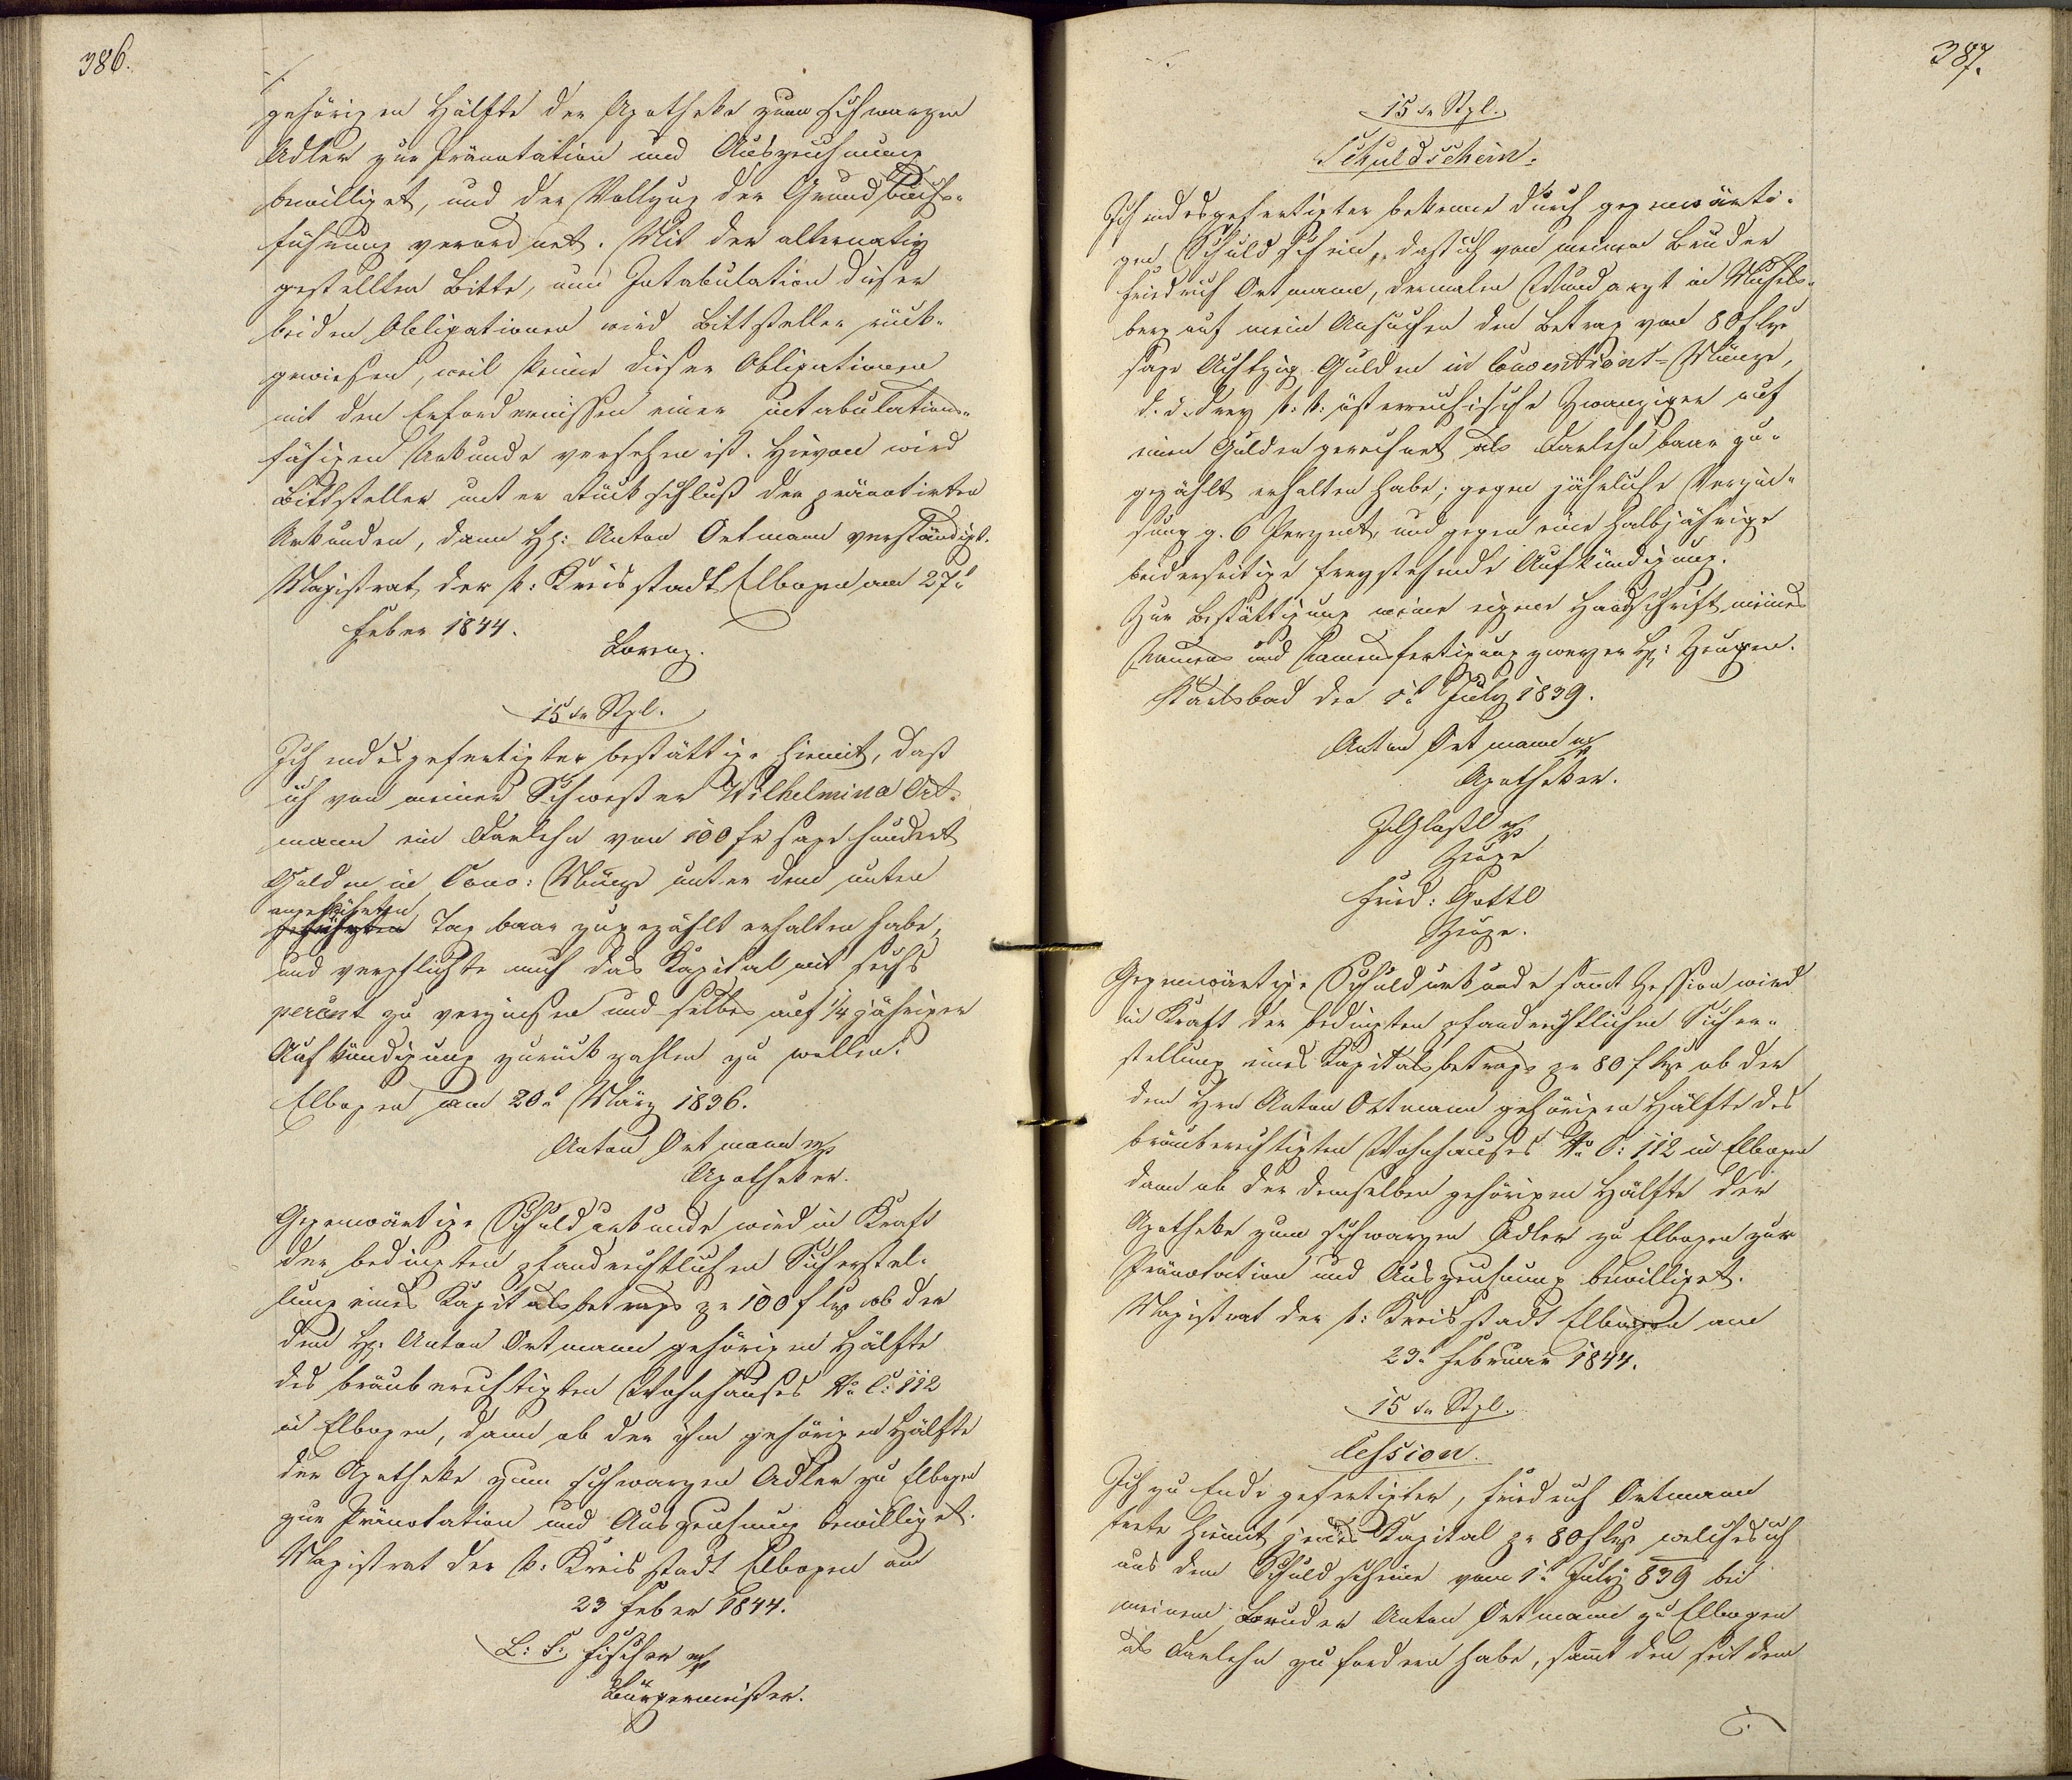 386.
gehörigen Hälfte der Apotheke zum schwarzen
Adler zur Pränotation und Auszeichnung
bewilliget, und der Vollzug der Grundbuchs-
führung verordnet. Mit der alternativ
gestellten Bitte, um Intabulation dieser
beiden Obligationen wird Bittsteller rück-
gewiesen, weil keine dieser Obligationen
mit den Erfordernissen einer intabulations-
fähigen Urkunde versehen ist. Hievon wird
Bittsteller unter Rückschluß der pränotirten
Urkunden, dann H: Anton Ortmann verständigt.
Magistrat der k: Kreisstadt Elbogen am 27t
Feber 1844.
Lorenz.
15 xr Stpl.
Ich endesgefertigter bestättige hiemit, daß
ich von meiner Schwester Wilhelmina Ort-
mann ein Darlehn von 100 fr sage hundert
Gulden in Conv: Münze unter dem unten
angeführten
Tag baar zugezählt erhalten habe,
und verpflichte mich das Kapital mit sechs
percent zu verzinsen und selbes auf 1/4 jähriger
Aufkündigung zurück zahlen zu wollen.
Elbogen am 20t März 1836.
Anton Ortmann mp
Apotheker.
Gegenwärtige Schuldurkunde wird in Kraft
der bedingten pfandrechtlichen Sicherstel-
lung eines Kapitalsbetrags pr 100 f CMze ob der
dem H: Anton Ortmann gehörigen Hälfte
des bräuberechtigten Wohnhauses No C: 112
in Elbogen, dann ob der ihm gehörigen Hälfte
der Apotheke zum schwarzen Adler zu Elbogen
zur Pränotation und Auszeichnung bewilliget.
Magistrat der k: Kreisstadt Elbogen am
23 Feber 1844.
L: S: Fischer mp
Bürgermeister.
387.
15 xr Stpl.
Schuldschein.
Ich endesgefertigter bekenne durch gegenwärti-
gen Schuldschein, daß ich von meinem Bruder
Friedrich Ortmann, dermalen Wundarzt in
berg auf mein Ansuchen den Betrag von 80 f CMze
sage Achtzig Gulden in Conventions-Münze,
d. i. drey k: k: österreichische Zwanziger auf
einen Gulden gerechnet als Darlehn baar zu-
gezählt erhalten habe; gegen jährliche Verzin-
sung z. 6 Perzent, und gegen eine halbjährige
beiderseitige freystehende Aufkündigung.
Zur Bestättigung meine eigene Handschrift meines
Namens und Namensfertigung zweyer H: Zeugen.
Karlsbad den 1t July 1839.
Anton Ortmann mp
Apotheker.
mp
Zeuge
Fried: Gottl
Zeuge.
Gegenwärtige Schuldurkunde sammt Zession wird
in Kraft der bedingten pfandrechtlichen Sicher-
stellung eines Kapitalsbetrags pr 80 f CMze ob der
dem Hrn Anton Ortmann gehörigen Hälfte des
bräuberechtigten Wohnhauses No C: 112 in Elbogen
dann ob der demselben gehörigen Hälfte der
Apotheke zum schwarzen Adler zu Elbogen zur
Pränotation und Auszeichnung bewilliget.
Magistrat der k: Kreisstadt Elbogen am
23t Februar 1844.
15 xr Stpl.
Cession.
Ich zu Ende gefertigter, Friedrich Ortmann
trete hiemit jenes Kapital pr 80 f CMze welches ich
aus dem Schuldscheine vom 1t July 839 bei
meinem Bruder Anton Ortmann zu Elbogen
als Darlehn zu fordern habe, sammt den seit dem